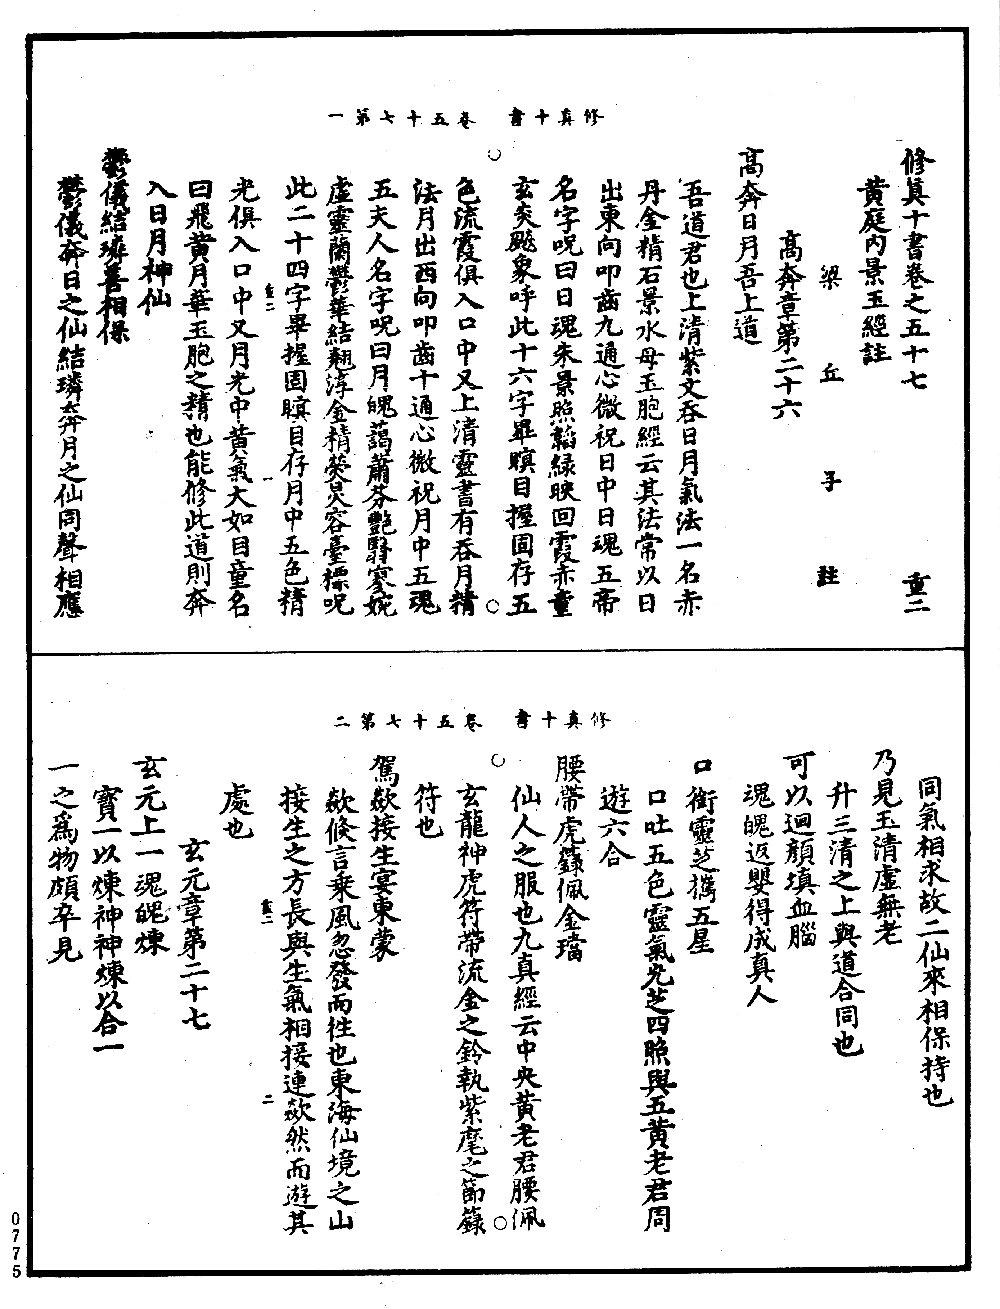 修真十書　卷五十七第一
修真十書卷之五十七　重二
黄庭内景玉經註
梁丘子註
高奔章第二十六
高奔日月吾上道
吾道君也上清紫文吞日月氣法一名赤
丹金精石景水母玉胞經云其法常以日
出東向叩齒九通心微祝日中日魂五帝
名字呪曰日魂朱景照韜緑映回霞赤童
玄炎飚象呼此十六字畢瞑目握固存五
色流霞俱入口中又上清靈書有吞月精
法月出西向叩齒十通心微祝月中五魂
五夫人名字呪曰月魄藹蕭芬艷翳寥婉
虚靈蘭鬱華結翹淳金精熒炅容臺標呪
此二十四字畢握固瞑目存月中五色精
光俱入口中又月光中黄氣大如目童名
曰飛黄月華玉胞之精也能修此道則奔
入日月神仙
鬱儀結璘善相保
鬱儀奔日之仙結璘奔月之仙同聲相應
重二　一
修真十書　卷五十七第二
同氣相求故二仙來相保持也
乃見玉清虚無老
升三清之上與道合同也
可以迴顔填血腦
魂魄返嬰得成真人
口銜靈芝攜五星
口吐五色靈氣光芝四照與五黄老君周
遊六合
腰帶虎籙佩金璫
仙人之服也九真經云中央黄老君腰佩
玄龍神虎符帶流金之鈴執紫麾之節籙
符也
駕歘接生宴東蒙
歘倏言乘風忽發而徃也東海仙境之山
接生之方長與生氣相接連歘然而遊其
處也
玄元章第二十七
玄元上一魂魄煉
寳一以煉神神煉以合一
一之爲物頗卒見
重二　二
0775